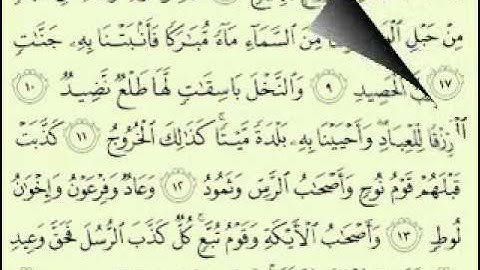 مِنْ حَبْلِ مِنَ ٱلسَّمَآءِ مَآءً مُّبَٰرَكًا فَأَنۢبَتْنَا بِهِۦ جَنَّٰتٍ
١٧ ٱلْحَصِيدِ ٩ وَٱلنَّخْلَ بَاسِقَٰتٍ لَّهَا طَلْعٌ نَّضِيدٌ ١٠
رِّزْقًا لِّلْعِبَادِ وَأَحْيَيْنَا بِهِۦ بَلْدَةً مَّيْتًا كَذَٰلِكَ ٱلْخُرُوجُ ١١ كَذَّبَتْ
قَبْلَهُمْ قَوْمُ نُوحٍ وَأَصْحَٰبُ ٱلرَّسِّ وَثَمُودُ ١٢ وَعَادٌ وَفِرْعَوْنُ وَإِخْوَٰنُ
لُوطٍ ١٣ وَأَصْحَٰبُ ٱلْأَيْكَةِ وَقَوْمُ تُبَّعٍ كُلٌّ كَذَّبَ ٱلرُّسُلَ فَحَقَّ وَعِيدِ